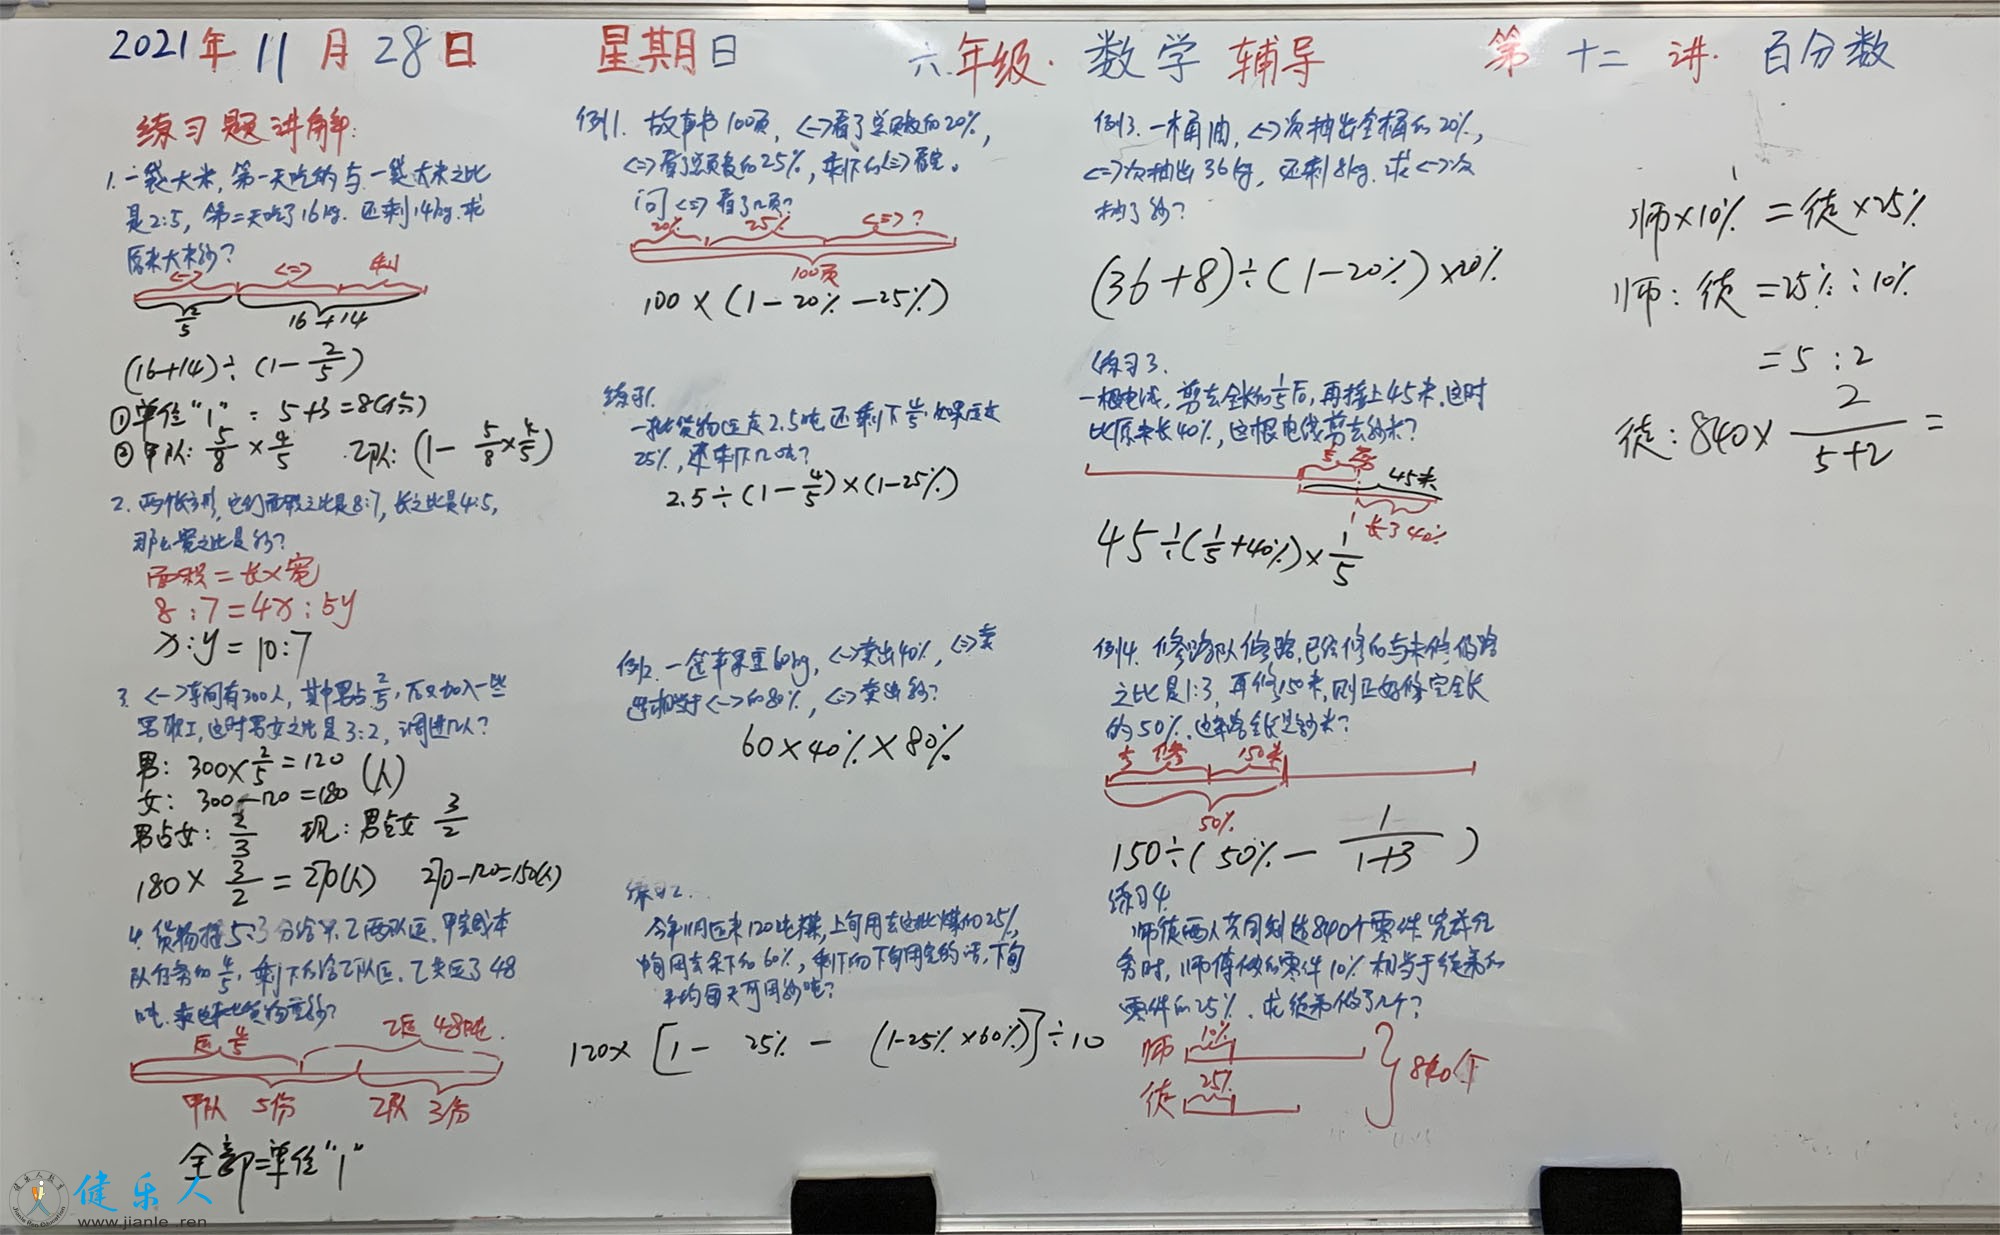 2021年11月28日 星期日 六年级·数学辅导 第十二讲·百分数
练习题讲解:
1.一袋大米,第一天吃的与一袋大米之比
是2:5,第二天吃了16kg.还剩14kg.求
原来大米多少?
<一> <二> 剩
2/5 16+14
(16+14)÷(1-2/5)
①单位"1":5+3=8(份)
②甲队:5/8×4/5 乙队:(1-5/8×4/5)
2.两个长方形,它们面积之比是8:7,长之比是4:5,
那么宽之比是多少?
面积=长×宽
8:7=4x:5y
x:y=10:7
3.<一>车间有300人,其中男占2/5,后又加入一些
男职工,这时男女之比是3:2,调进几人?
男:300×2/5=120(人)
女:300-120=180
男占女:2/3 现:男占女3/2
180×3/2=270(人) 270-120=150(人)
4.货物按5:3分给甲、乙两队运.甲完成本
队任务的4/5,剩下的给乙队运.乙共运了48
吨.求这批货物重多少?
运4/5 乙运48吨.
甲队 5份 乙队 3份
全部=单位"1"
例1.故事书100页,<一>看了总页数的20%,
<二>看了总页数的25%,剩下的<三>看完。
问<三>看了几页?
20% 25% <三>?
100页
100×(1-20%-25%)
练习1.
一批货物运走2.5吨还剩下4/5,如果运走
25%,还剩下几吨?
2.5÷(1-4/5)×(1-25%)
例2.一筐苹果重60kg,<一>卖出40%,<二>卖
出相当于<一>的80%,<二>卖出多少?
60×40%×80%
练习2.
今年11月运来120吨煤,上旬用去这批煤的25%,
中旬用去余下的60%,剩下的下旬用完的话,下旬
平均每天可用多少吨?
120×[1-25%-(1-25%×60%)]÷10
例3.一桶油,<一>次抽出全桶的20%,
<二>次抽出36kg,还剩8kg.求<一>次
抽了多少?
(36+8)÷(1-20%)×20%
练习3.
一根电线,剪去全长的1/5后,再接上45米.这时
比原来长40%,这根电线剪去多少米?
45米
长了40%
45÷(1/5+40%)×1/5
例4.修路队修路,已经修的与未修的路
之比是1:3,再修150米,则正好修完全长
的50%.这条路全长是多少米?
150米
50%
150÷(50%-1/(1+3))
练习4.
师徒两人共同制造840个零件完成任
务时,师傅做的零件10%相当于徒弟的
零件的25%.求徒弟做了几个?
师 10%
徒 25%
840个
师×10%=徒×25%
师:徒=25%:10%
=5:2
徒:840×2/(5+2)=
健乐人
www.jianle.ren